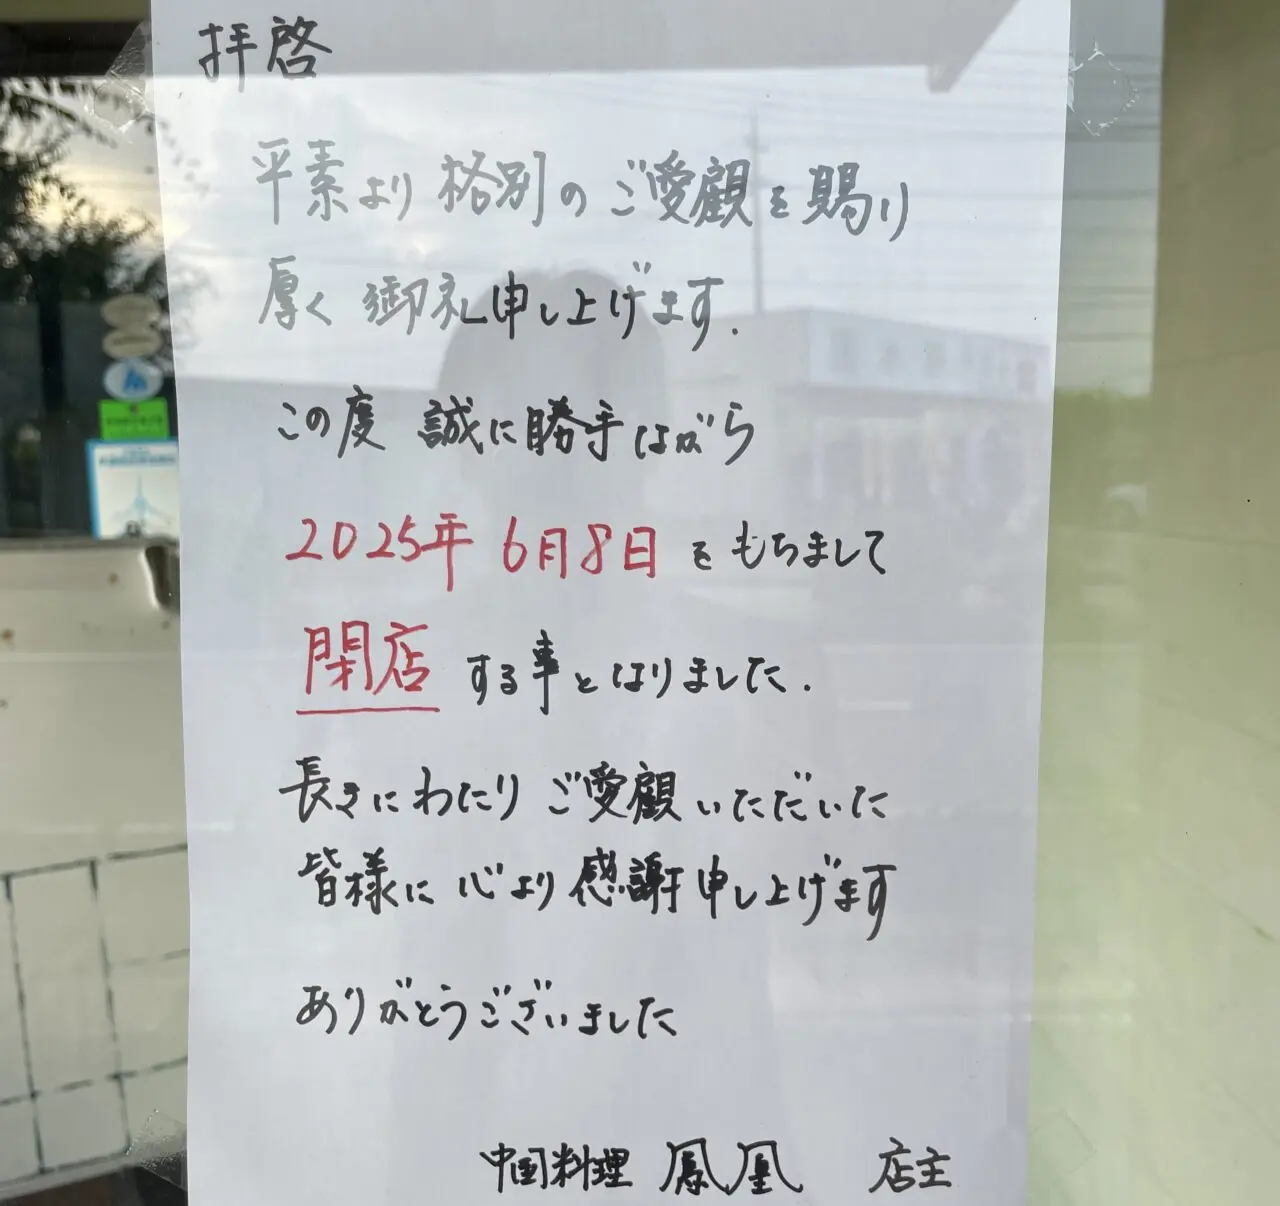 拝啓
平素より格別のご愛顧を賜り
厚く御礼申し上げます.
この度 誠に勝手ながら
2025年 6月8日をもちまして
閉店する事となりました.
長きにわたりご愛顧いただいた
皆様に心より感謝申し上げます
ありがとうございました
中国料理 鳳凰 店主